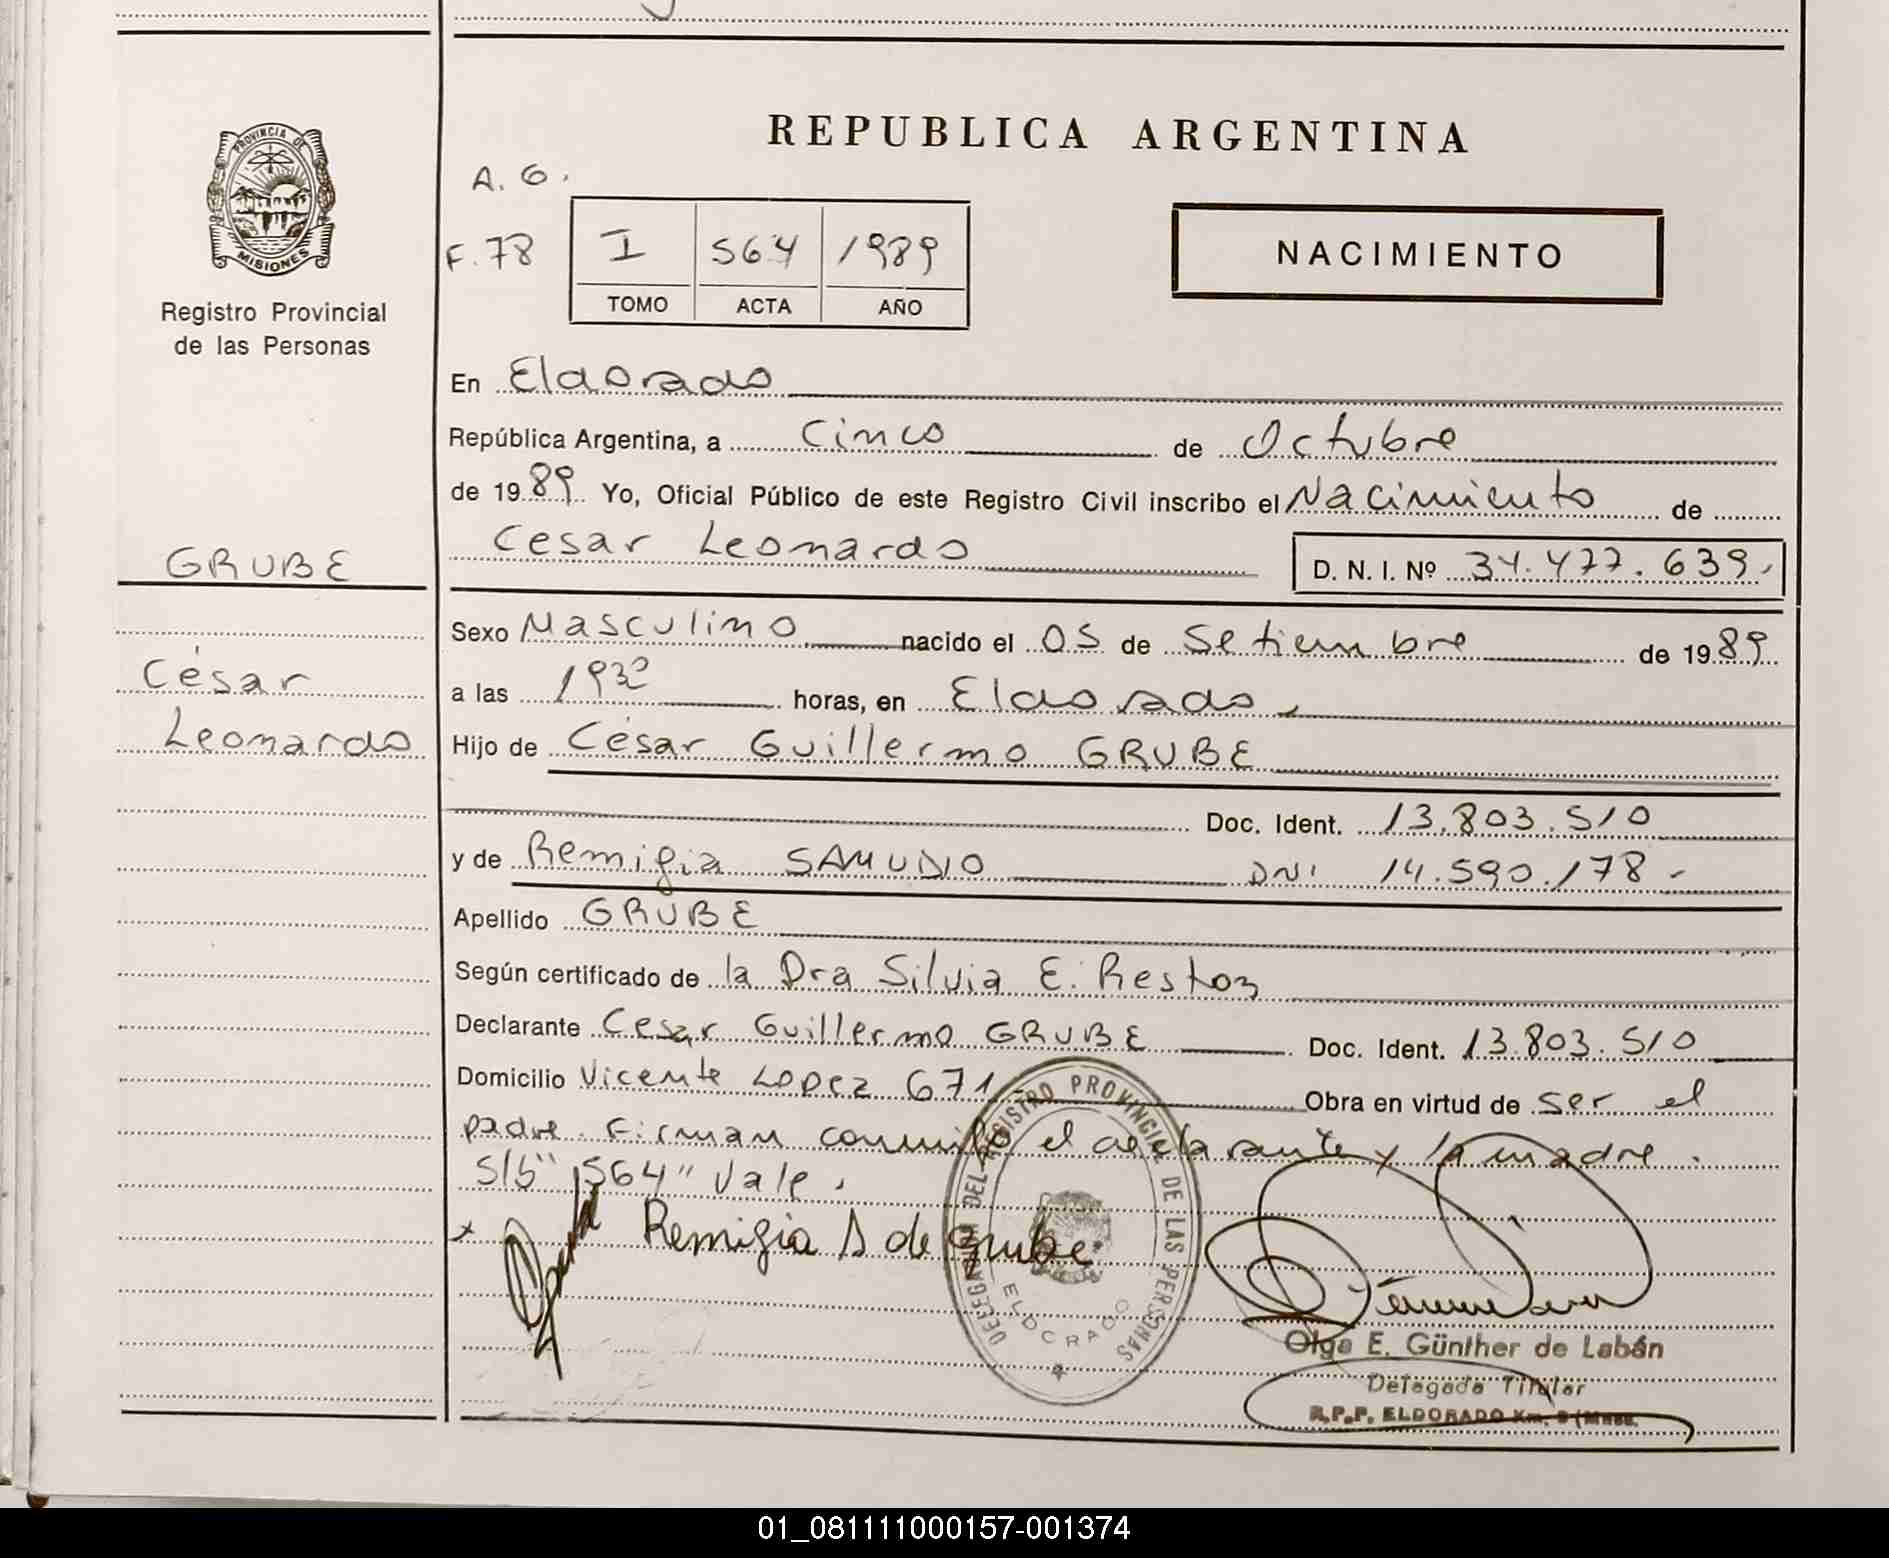 REPUBLICA ARGENTINA
PROVINCIA DE
MISIONES
Registro Provincial
de las Personas
A. G.
F. 78
I 564 1989
TOMO ACTA AÑO
NACIMIENTO
En Eldorado
República Argentina, a Cinco de Octubre
de 1989 Yo, Oficial Público de este Registro Civil inscribo el Nacimiento de
Cesar Leonardo D. N. I. Nº 34.477.639.-
GRUBE
César
Leonardo
Sexo Masculino nacido el 05 de Setiembre de 1989
a las 1930 horas, en Eldorado,
Hijo de César Guillermo GRUBE
Doc. Ident. 13.803.510
y de Remigia SAMUDIO DNI 14.590.178.-
Apellido GRUBE
Según certificado de la Dra Silvia E. Restoz
Declarante Cesar Guillermo GRUBE Doc. Ident. 13.803.510
Domicilio Vicente Lopez 671 Obra en virtud de ser el
padre. Firman conmigo el declarante y la madre.
S/b "564" Vale.
Remigia S de Grube
DELEGACION DEL REGISTRO PROVINCIAL DE LAS PERSONAS
ELDORADO
Olga E. Günther de Labán
Delegada Titular
R.P.P. ELDORADO Km. 9 (Mnes.
01_081111000157-001374